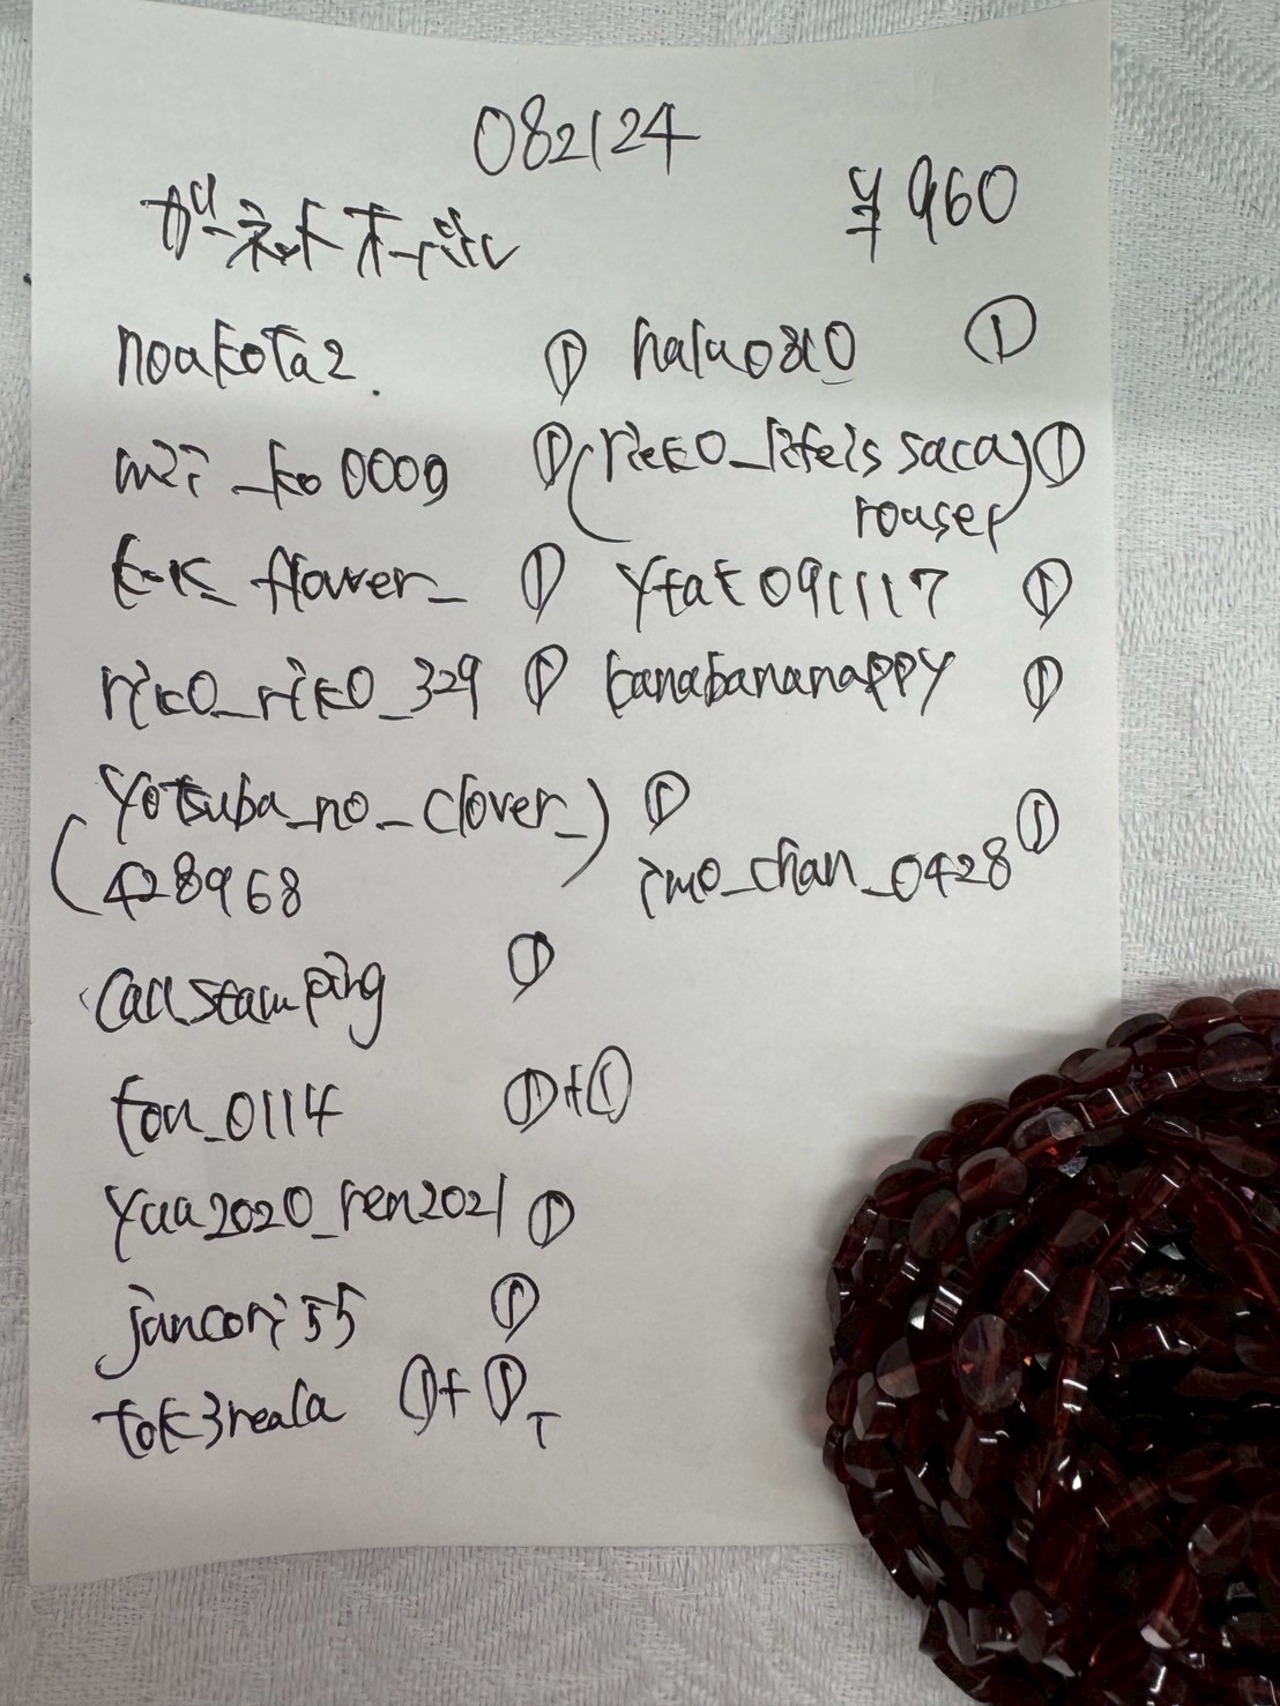 082124
ガーネットオーバル ¥960
noakota2 ① halu0810 ①
mii_ko0009 ① (rieko_lifeis saca) ①
rouser
k-k_flower_ ① ytat091117 ①
riko_riko_329 ① banabananappy ①
(yotsuba_no_clover_) ①
428968 imo_chan_0428 ①
callstamping ①
ton_0114 ①+①
yaa2020_ren2021 ①
jancori55 ①
tok3reala ①+①T